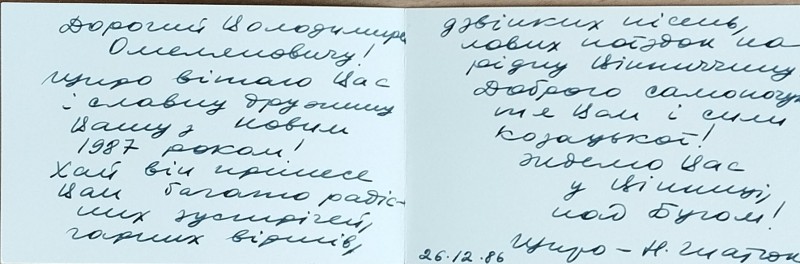 Дорогий Володимире
Омеляновичу!
Щиро вітаю Вас
і славну дружину
Вашу з Новим
1987 роком!
Хай він принесе
Вам багато радіс-
них зустрічей,
гарних віршів,
дзвінких пісень,
нових поїздок на
рідну Вінниччину
Доброго самопочут
тя Вам і сили
козацької!
Ждемо Вас
у Вінниці,
над Бугом!
26.12.86 Щиро – Н. Гнатюк